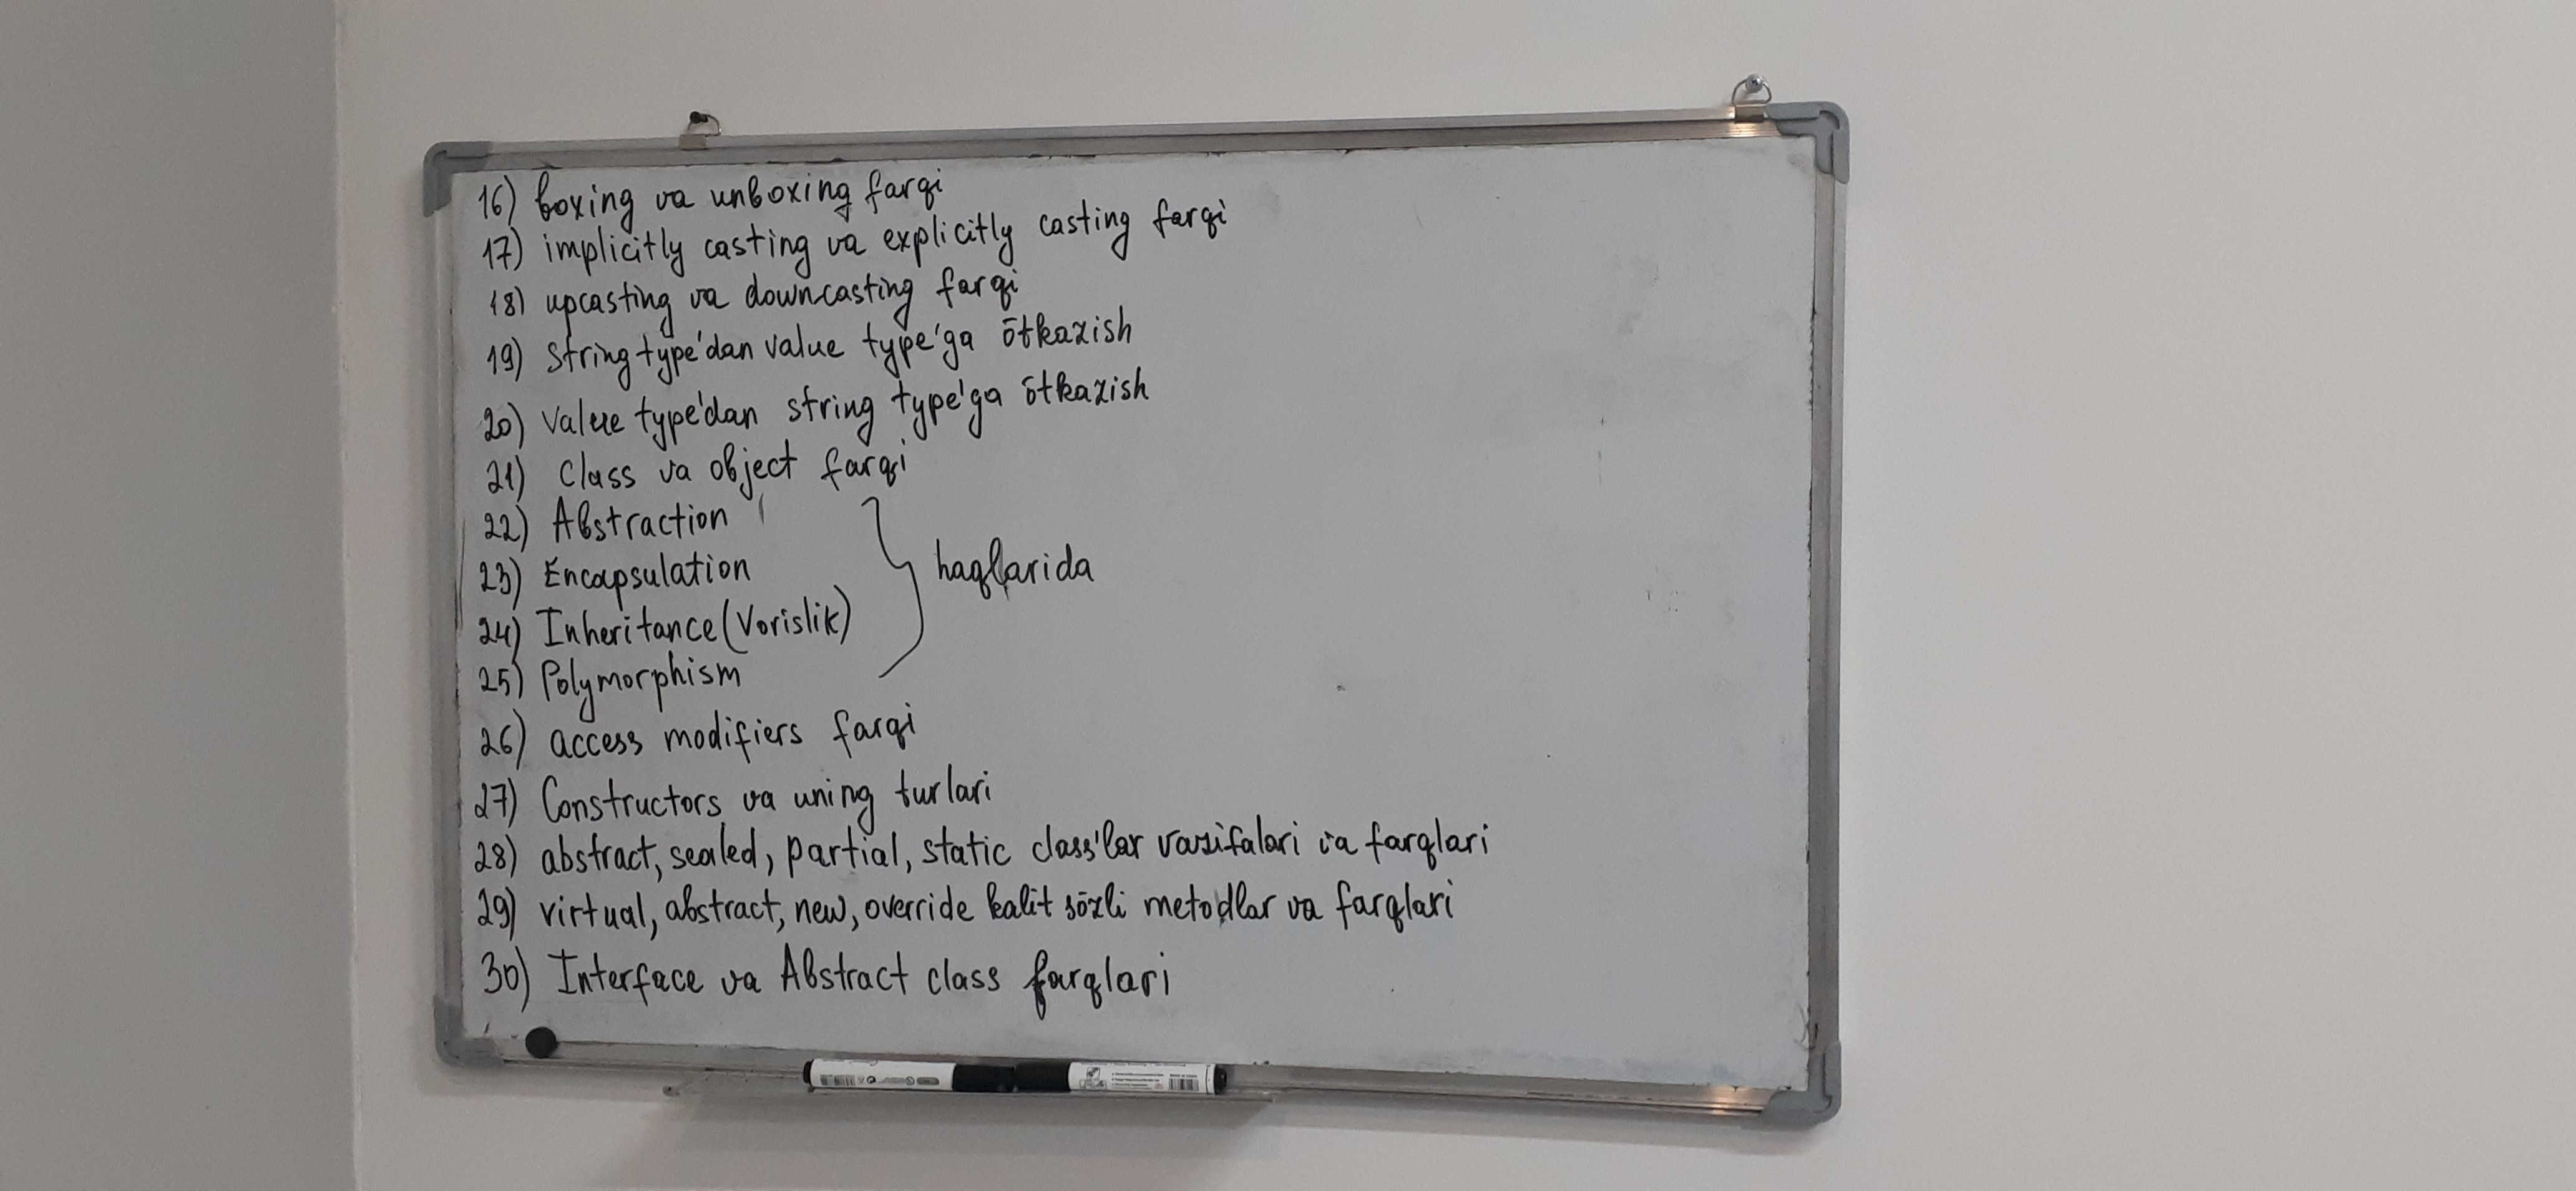 16) boxing va unboxing farqi
17) implicitly casting va explicitly casting farqi
18) upcasting va downcasting farqi
19) String type'dan value type'ga ōtkazish
20) Value type'dan string type'ga ōtkazish
21) Class va object farqi
22) Abstraction
23) Encapsulation
haqlarida
24) Inheritance (Vorislik)
25) Polymorphism
26) access modifiers farqi
27) Constructors va uning turlari
28) abstract, sealed, partial, static class'lar vazifalari va farqlari
29) virtual, abstract, new, override kalit sōzli metodlar va farqlari
30) Interface va Abstract class farqlari